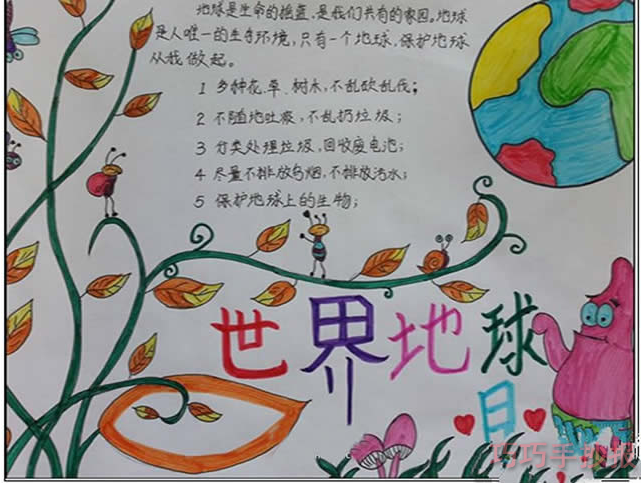 地球是生命的摇篮，是我们共有的家园。地球
是人唯一的生存环境，只有一个地球，保护地球
从我做起。
1 多种花、草、树木，不乱砍乱伐；
2 不随地吐痰，不乱扔垃圾；
3 分类处理垃圾，回收废电池；
4 尽量不排放乌烟，不排放污水；
5 保护地球上的生物；
世界地球
日
巧巧手抄报